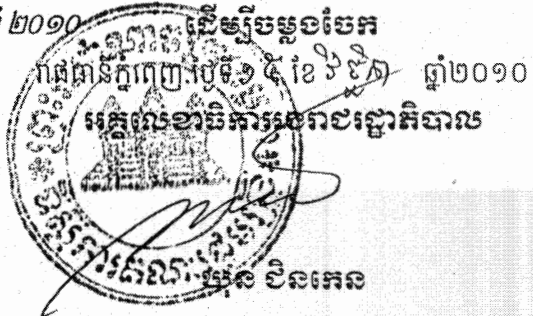 ២០១០
ដើម្បីចម្លងចែក
រាជធានីភ្នំពេញ.ថ្ងៃទី ១៥ ខែ វិច្ឆិកា ឆ្នាំ២០១០
អគ្គលេខាធិការរងរាជរដ្ឋាភិបាល
យុន ជិនកេន